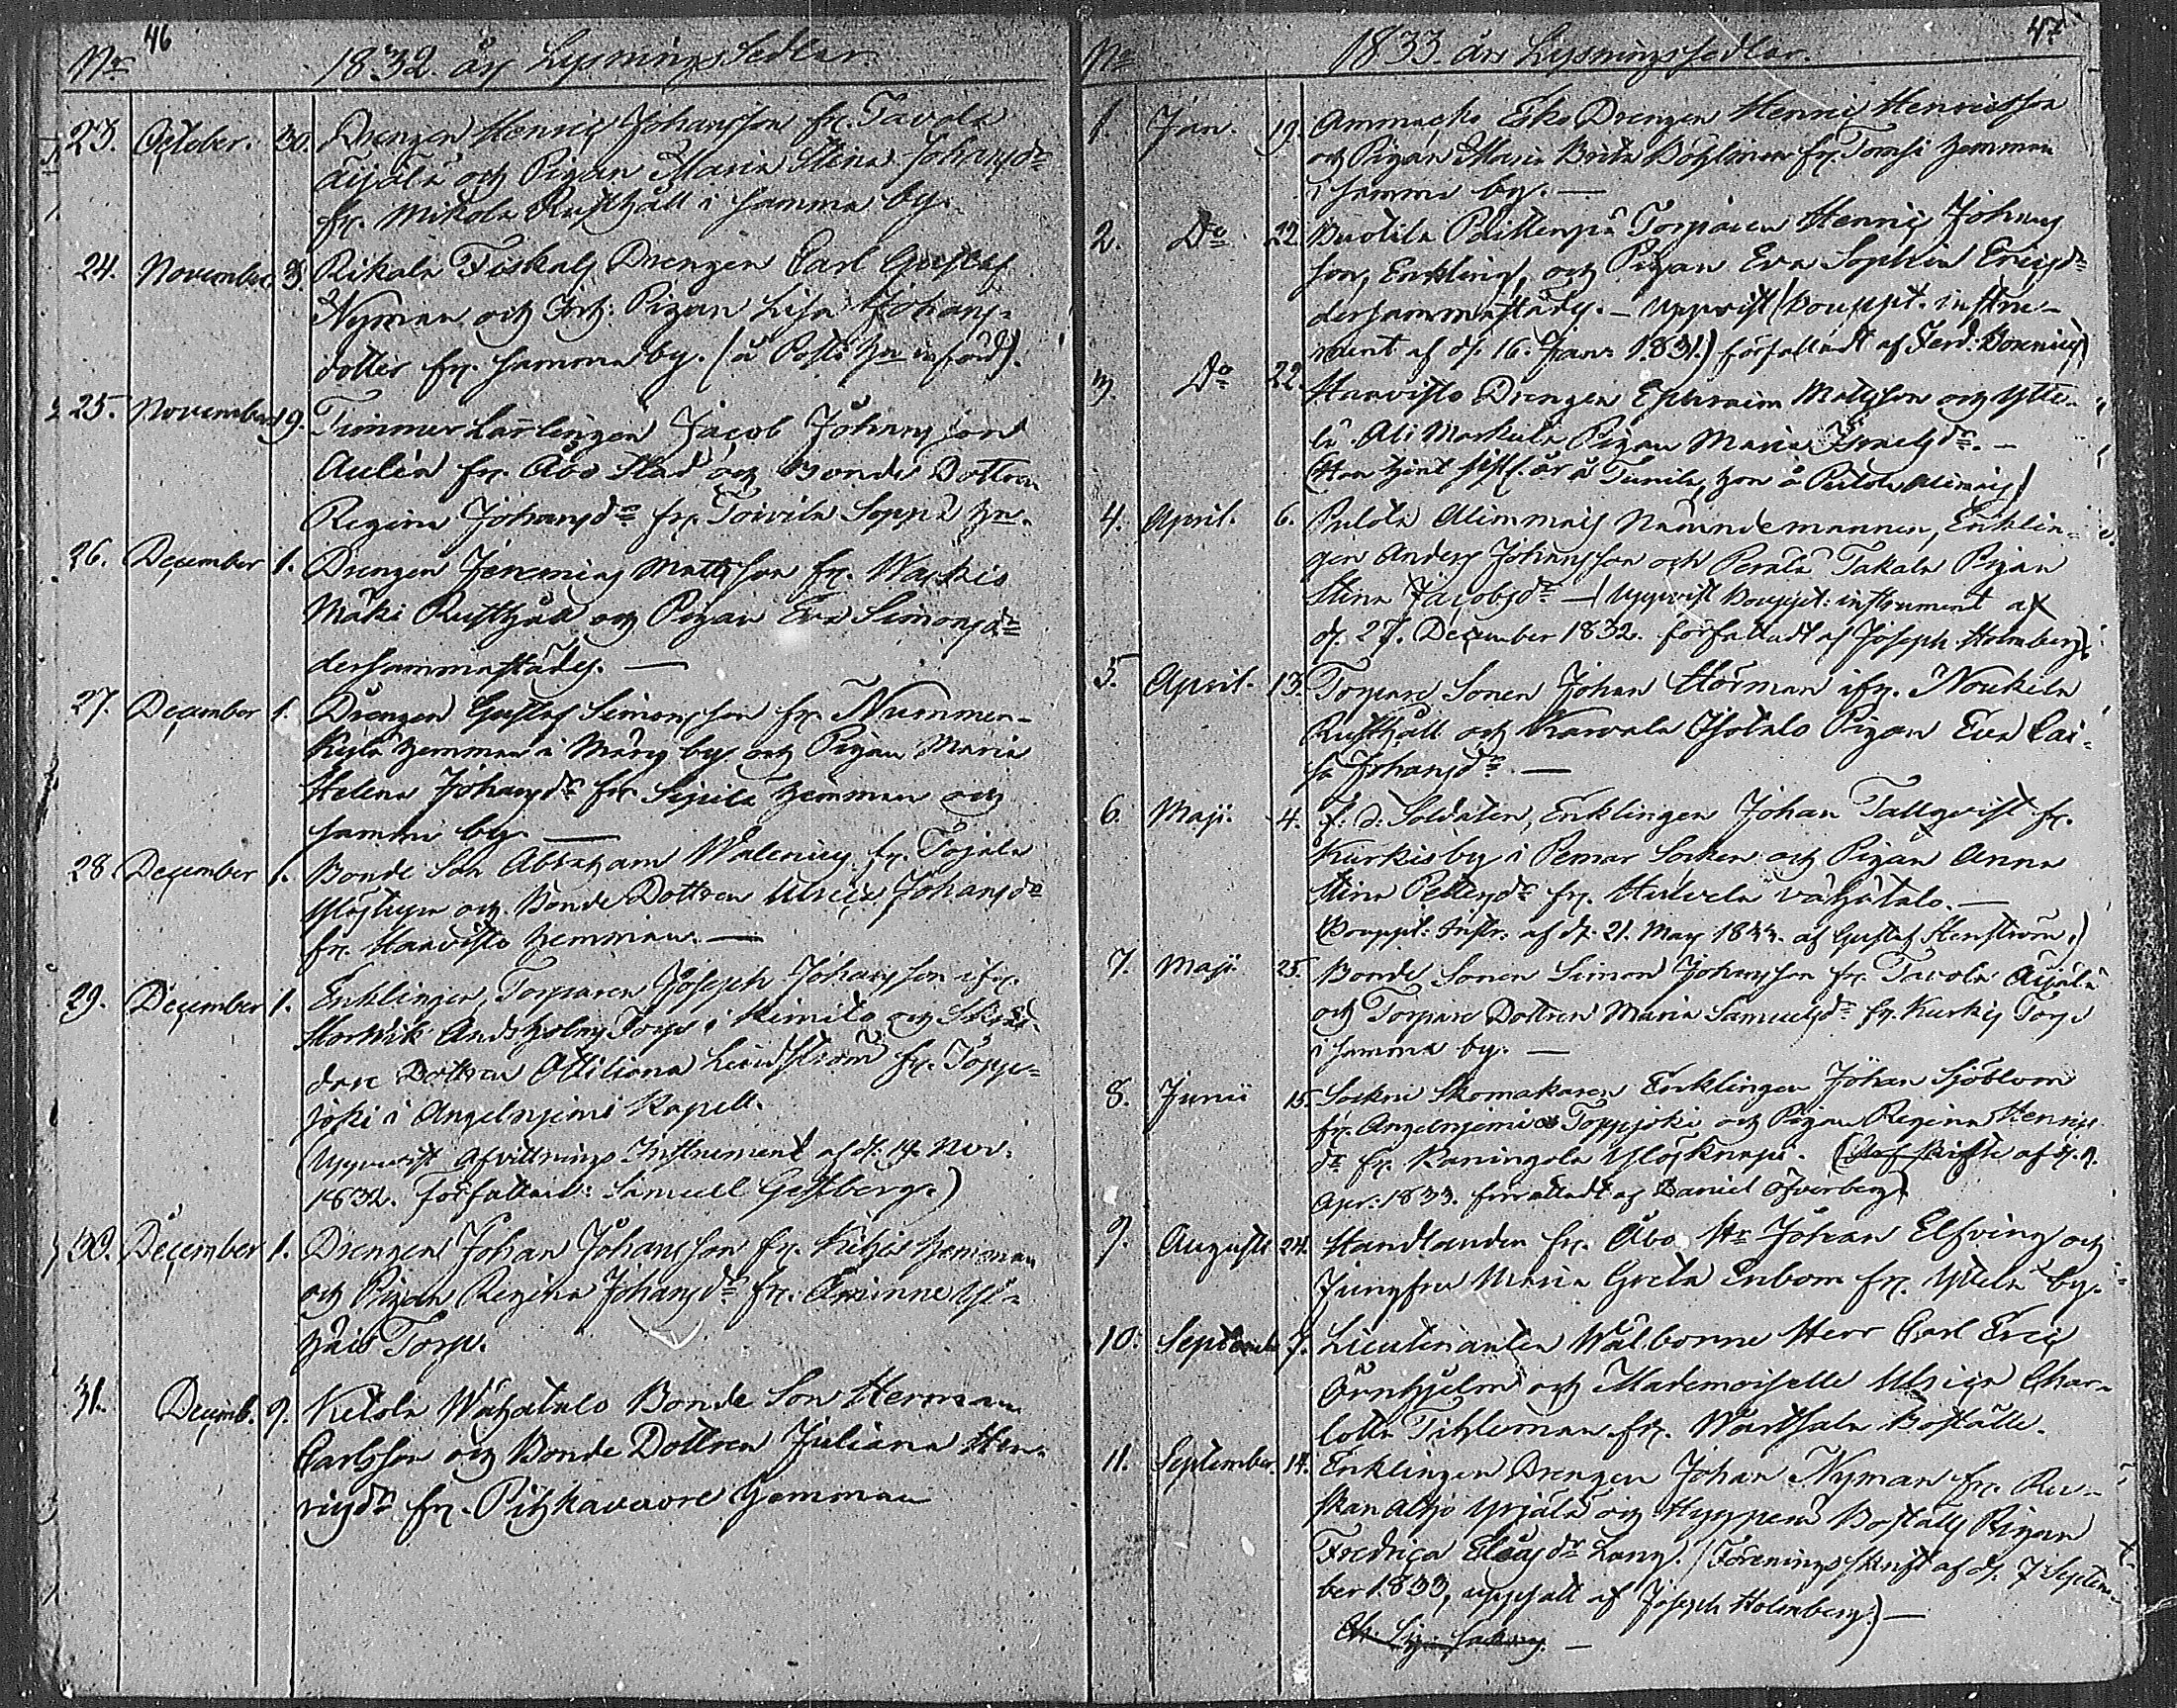 46
No 1832 års Lysnings Sedlar.
23. October. 30. Drengen Henric Johansson fr. Tavola
Äijälä och Pigan Maria Stina Johansdr
fr. Mikola Rusthåll i samma by.
24. November. 3. Rikala Fiskals Drengen Carl Gustaf
Nyman och Pigan Lisa Johans-
dotter fr. samma by.
25. November 9. Timmer Lärlingen Jacob Johansson
Aulin fr. Åbo Stad och Bonde Dottren
Regina Johansdr fr. Toivila Soppa
26. December 1. Drengen Jeremias Mattsson fr. Waskio
Mäki Rusthåll och Pigan Eva Simonsdr
dersammastädes. —
27. December 1. Drengen Gustaf Simonsson fr. Nummen-
Kylä hemman i Märy by och Pigan Maria
Helena Johansdr fr. Sipilä hemman och
samma by. —
28 December 1. Bonde Son Abraham Walenius fr. Tojala
och Bonde Dottren Ulrica Johansdr
fr. Haavisto hemman. —
29. December 1. Enklingen, Torparen Joseph Johansson ifr.
Torp i Kimito och
dare Dottren Ottiliana Lindström fr. Toppi-
joki i Angelniemi Kapell.
(Uppvist Afvittrings Instrument af d. 14 Nov.
1832. författadt: Samuel Gestberg.)
30. December 1. Drengen Johan Johansson fr. hemman
och Pigan Regina Johansdr fr.
Torp.
31. Decemb. 9. Ketola Wähätalo Bonde Son Herman
Carlsson och Bonde Dottren Juliana Hen-
ricsdr fr. Pitkävuore hemman
47
No 1833. års Lysningssedlar.
1. Jan. 19. Ammasko Esko Drengen Henric Henricsson
och Pigan Maria Brita fr. Tomsi hemman
i samma by. —
2. Do 22. Torparen Henric Johans
son, Enkling, och Pigan Eva Sophia Ericsdr
dersammastädes. — Uppvist (Bouppt. instru-
ment af d. 16. Jan. 1831.) författadt af Ferd.
3. Do 22. Haavisto Drengen Ephraim Mattsson och Ytte-
lä Ali Markula Pigan Maria Israelsdr. —
4. April. 6. Pulola Alimmais Nämndemannen, Enklin-
gen Anders Johansson och Perälä Takala Pigan
Stina Jacobsdr — (Uppvist Bouppt: instrument af
d. 27. December 1832. författadt af Joseph Holmberg)
5. April. 13. Torpare Sonen Johan Hörman ifr. Noukila
Rusthåll och Karvala Isotalo Pigan Eva Cai-
sa Johansdr. —
6. Maji. 4. f: d: Soldaten, Enklingen Johan Tallqvist fr.
Kurkis by i Pemar Socken och Pigan Anna
Stina Pettersdr fr. Vähätalo. —
(Bouppt: Instr. af d. 21. May 1833. af Gustaf Stenström.)
7. Maji. 25. Bonde Sonen Simon Johansson fr. Tavola Äijälä
och Torpare Dottren Maria Samuelsdr fr. Kurkis Torp
i samma by. —
8. Junii 15. Sockne Skomakaren Enklingen Johan Sjöblom
fr. Angelniemi Toppjoki och Pigan Regina Henrics
dr fr. Kaningola af d. 9.
Apr: 1833. författadt af Daniel Öfverberg)
9. Augusti 24. Handlanden fr. Åbo Hr Johan Elfving och
Jungfru Maria Greta Enbom fr. Yttelä by.
10. September 7. Lieutenanten Wälborne Herr Carl Eric
Örnhjelm och Mademoiselle Ulrica Char-
lotta Tihleman fr. Wartsala Boställe.
11. September. 14. Enklingen Drengen Johan Nyman fr. Ru-
skan altjo Yrjälä och Boställs Pigan
Fredrica Eliædr Lang. (Föreningsskrift af d. 7 Septem-
ber 1833, uppsatt af Joseph Holmberg.) —